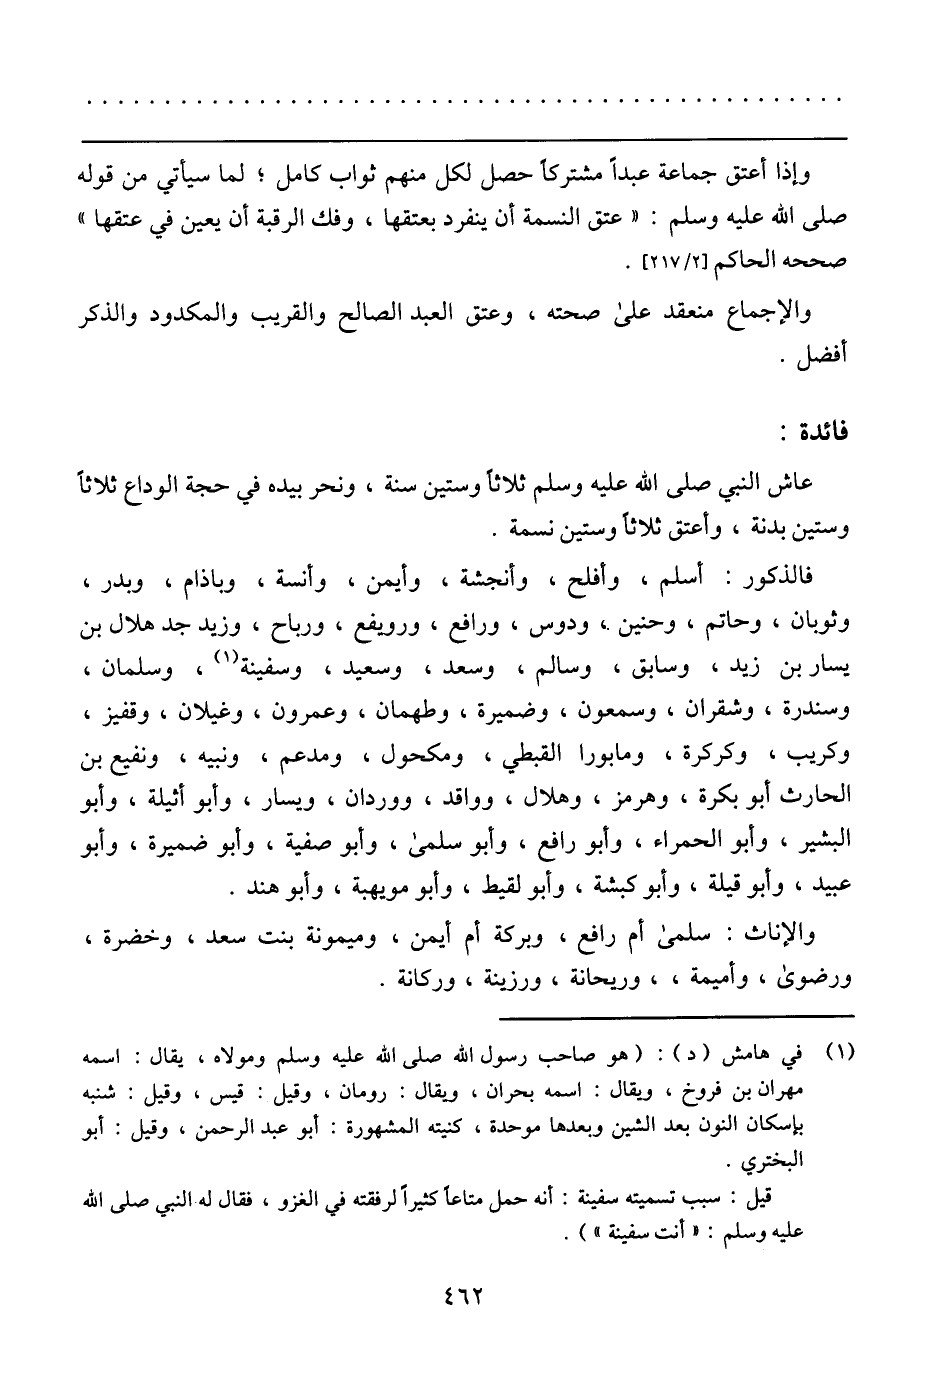 وإذا أعتق جماعة عبداً مشتركاً حصل لكل منهم ثواب كامل ؛ لما سيأتي من قوله
صلى الله عليه وسلم : « عتق النسمة أن ينفرد بعتقها ، وفك الرقبة أن يعين في عتقها »
صححه الحاكم [٢/ ٢١٧] .
والإجماع منعقد علىٰ صحته ، وعتق العبد الصالح والقريب والمكدود والذكر
أفضل .
فائدة :
عاش النبي صلى الله عليه وسلم ثلاثاً وستين سنة ، ونحر بيده في حجة الوداع ثلاثاً
وستين بدنة ، وأعتق ثلاثاً وستين نسمة .
فالذكور : أسلم ، وأفلح ، وأنجشة ، وأيمن ، وأنسة ، وباذام ، وبدر ،
وثوبان ، وحاتم ، وحنين ، ودوس ، ورافع ، ورويفع ، ورباح ، وزيد جد هلال بن
يسار بن زيد ، وسابق ، وسالم ، وسعد ، وسعيد ، وسفينة(١) ، وسلمان ،
وسندرة ، وشقران ، وسمعون ، وضميرة ، وطهمان ، وعمرون ، وغيلان ، وقفيز ،
وكريب ، وكركرة ، ومابورا القبطي ، ومكحول ، ومدعم ، ونبيه ، ونفيع بن
الحارث أبو بكرة ، وهرمز ، وهلال ، وواقد ، ووردان ، ويسار ، وأبو أثيلة ، وأبو
البشير ، وأبو الحمراء ، وأبو رافع ، وأبو سلمىٰ ، وأبو صفية ، وأبو ضميرة ، وأبو
عبيد ، وأبو قيلة ، وأبو كبشة ، وأبو لقيط ، وأبو مويهبة ، وأبو هند .
والإناث : سلمىٰ أم رافع ، وبركة أم أيمن ، وميمونة بنت سعد ، وخضرة ،
ورضوىٰ ، وأميمة ، ، وريحانة ، ورزينة ، وركانة .
(١) في هامش (د) : ( هو صاحب رسول الله صلى الله عليه وسلم ومولاه ، يقال : اسمه
مهران بن فروخ ، ويقال : اسمه بحران ، ويقال : رومان ، وقيل : قيس ، وقيل : شنبه
بإسكان النون بعد الشين وبعدها موحدة ، كنيته المشهورة : أبو عبد الرحمن ، وقيل : أبو
البختري .
قيل : سبب تسميته سفينة : أنه حمل متاعاً كثيراً لرفقته في الغزو ، فقال له النبي صلى الله
عليه وسلم : « أنت سفينة » ) .
٤٦٢